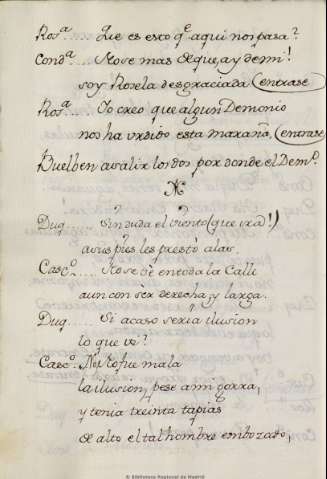 Ros.ª ..... Que es esto q.e aqui nos pasa?
Cond.ª ..... No se mas de que, ay de mi!
soy Rosela desgraciada (entrase
Ros.ª ..... Yo creo que algun Demonio
nos ha urdido esta maraña, (entrase
Buelben a salir los dos por donde el Dem.º
Duq ..... Sin duda el viento (que ira!)
a sus pies les presto alas.
Casc.º ..... No se ve en toda la Calle
aun con ser derecha, y larga.
Duq ..... Si acaso seria ilusion
lo que ve?
Casc.º ..... No fue mala
la ilusion, pese a mi gorra,
y tenia treinta tapias
de alto el tal hombre embozado,
© Biblioteca Nacional de Madrid